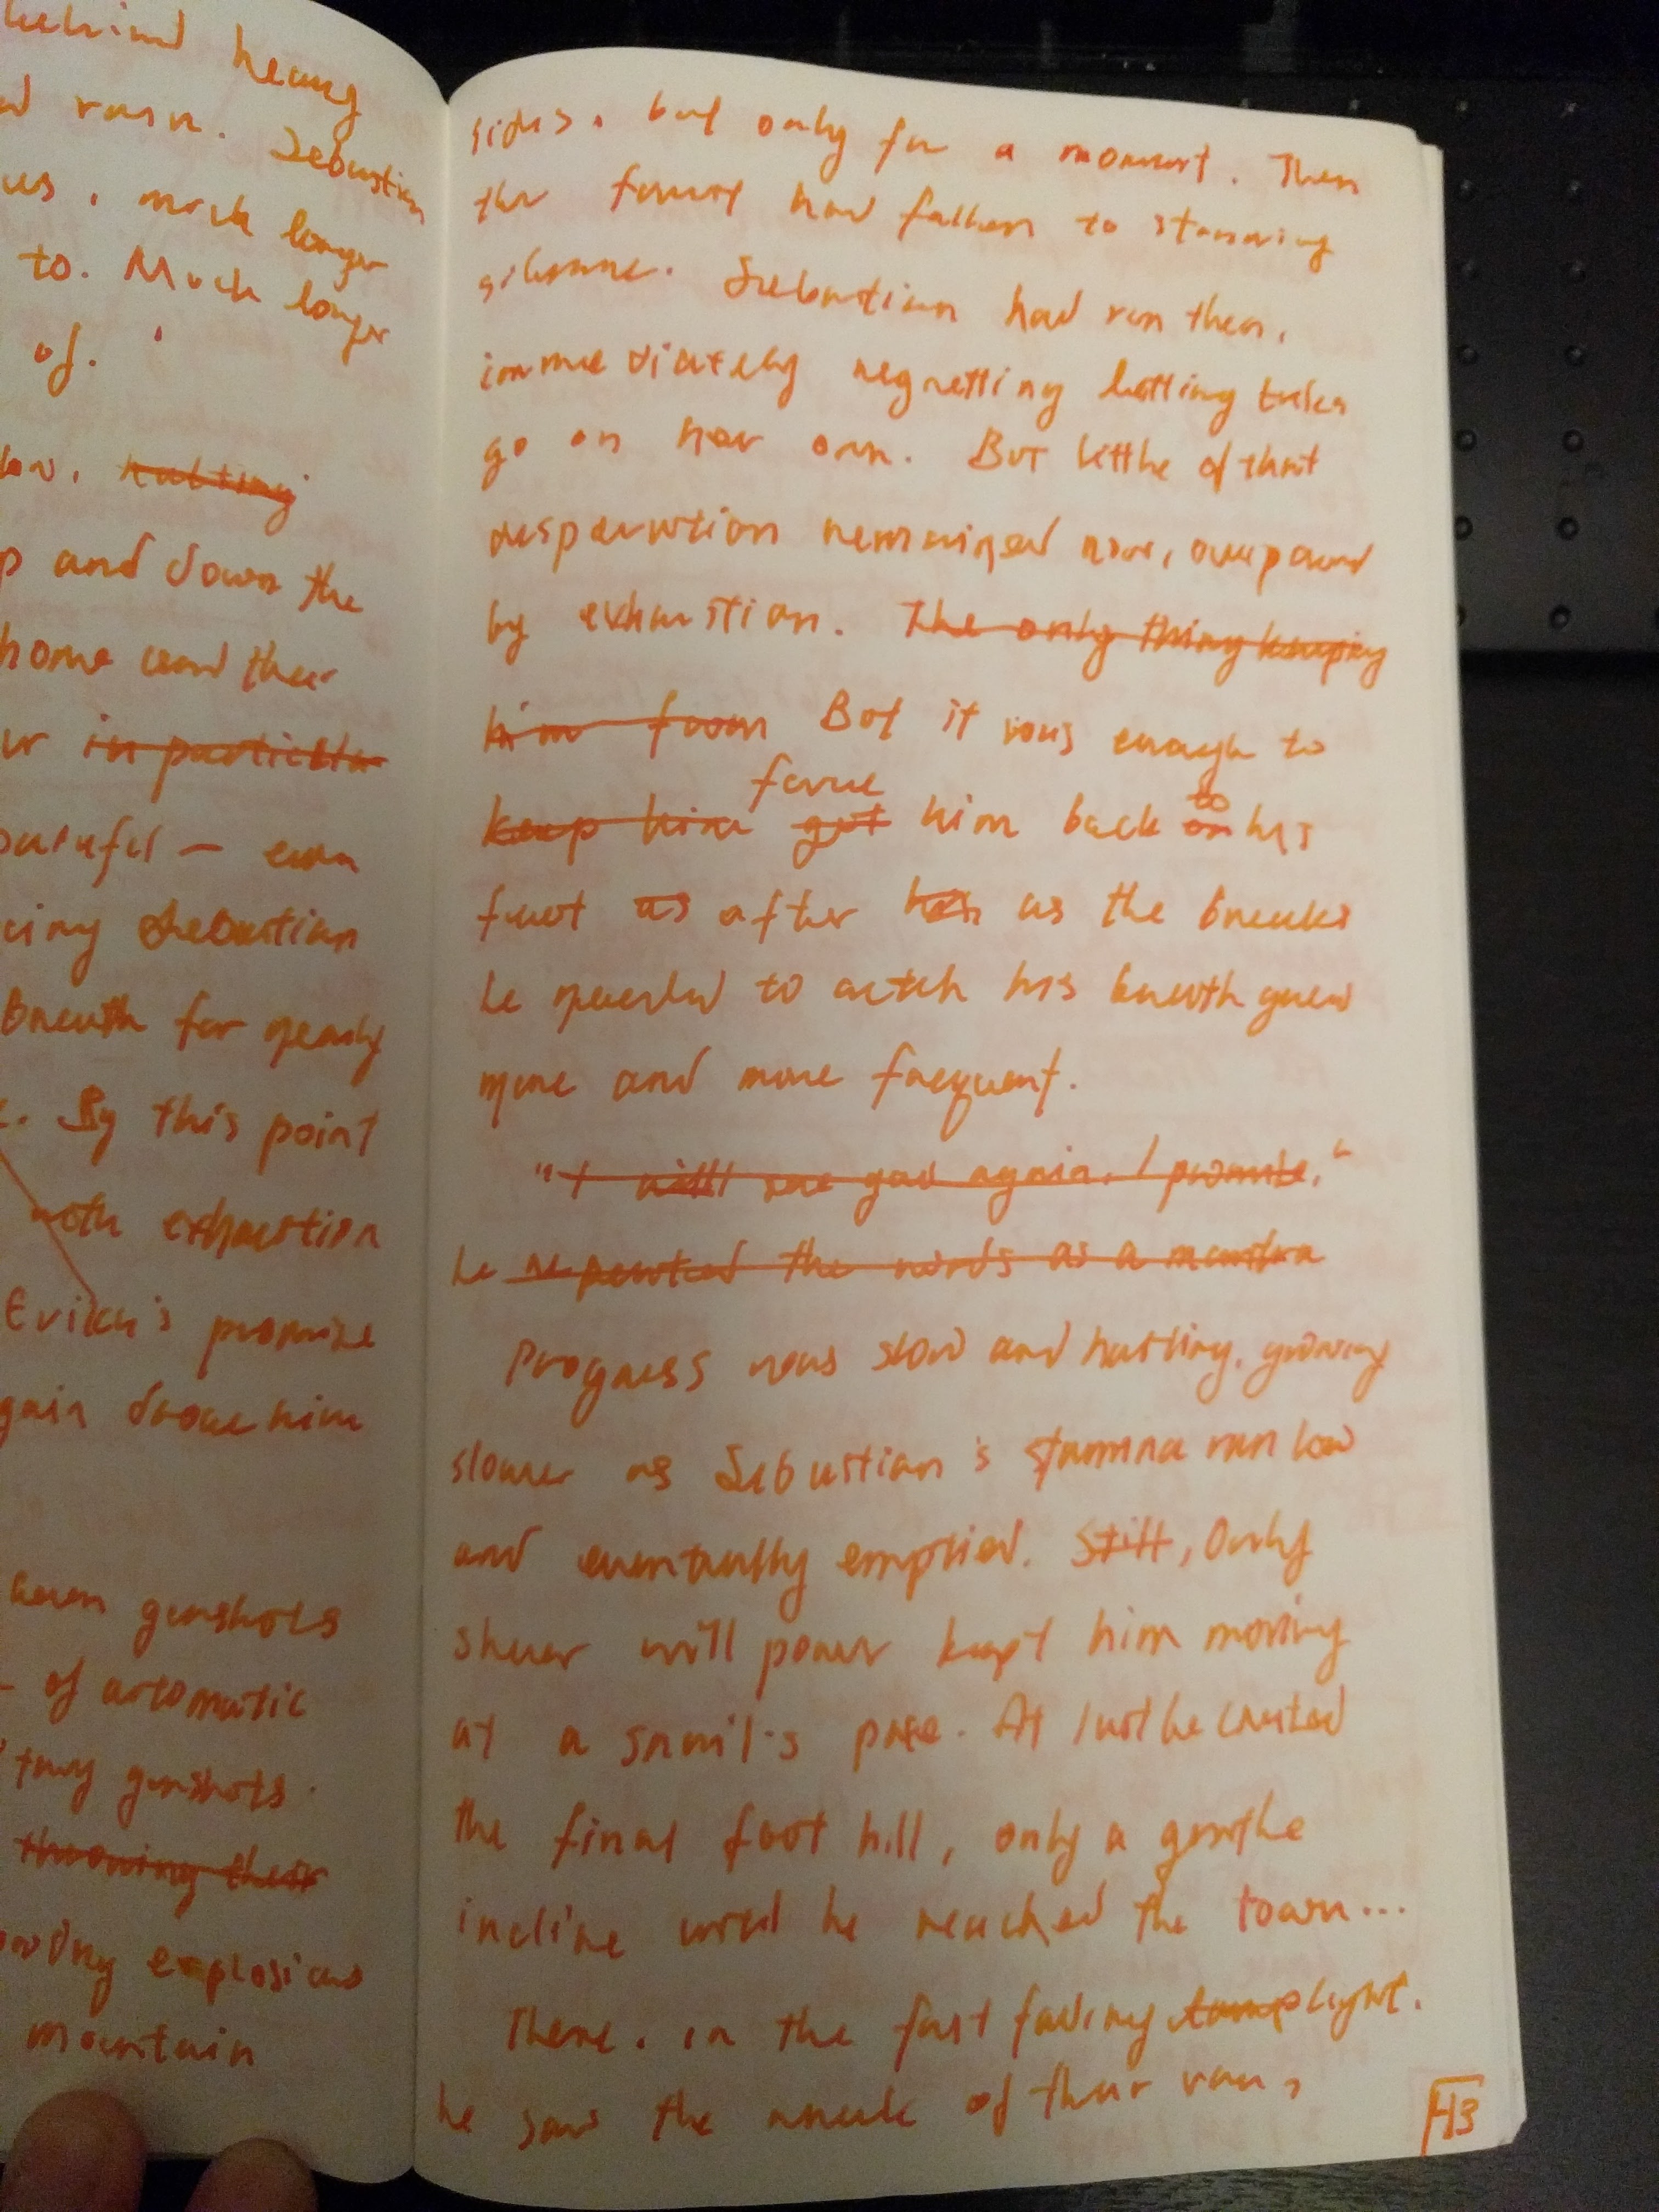 behind heavy
rain. Sebastian
us, much longer
to. Much longer
of.
halting
and down the
home and their
in particular
even
Sebastian
breath for nearly
By this point
with exhaustion
Erika's promise
drove him
gunshots
of automatic
gunshots.
throwing their
explosions
mountain
sides, but only for a moment. Then
the forest had fallen to stunning
silence. Sebastian had ran then,
immediately regretting letting
go on her own. But little of that
desperation remained now, overpowered
by exhaustion. The only thing keeping
him from But it was enough to
force
to
keep him get him back on his
feet as after as the breaks
he needed to catch his breath grew
more and more frequent.
"I will see you again. I promise."
he repeated the words as a mantra
Progress was slow and halting, growing
slower as Sebastian's stamina ran low
and eventually emptied. Still, Only
sheer will power kept him moving
at a snail's pace. At last he crested
the final foot hill, only a gentle
incline until he reached the town...
There, in the fast fading light,
he saw the wreck of their van,
H3